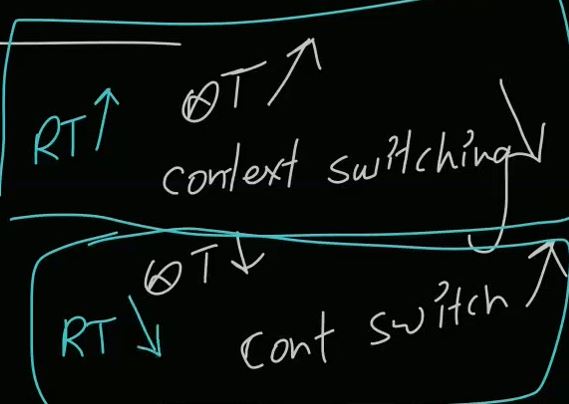 QT ↗
RT ↑
context switching ↘
QT ↓
RT ↘
cont switch ↗